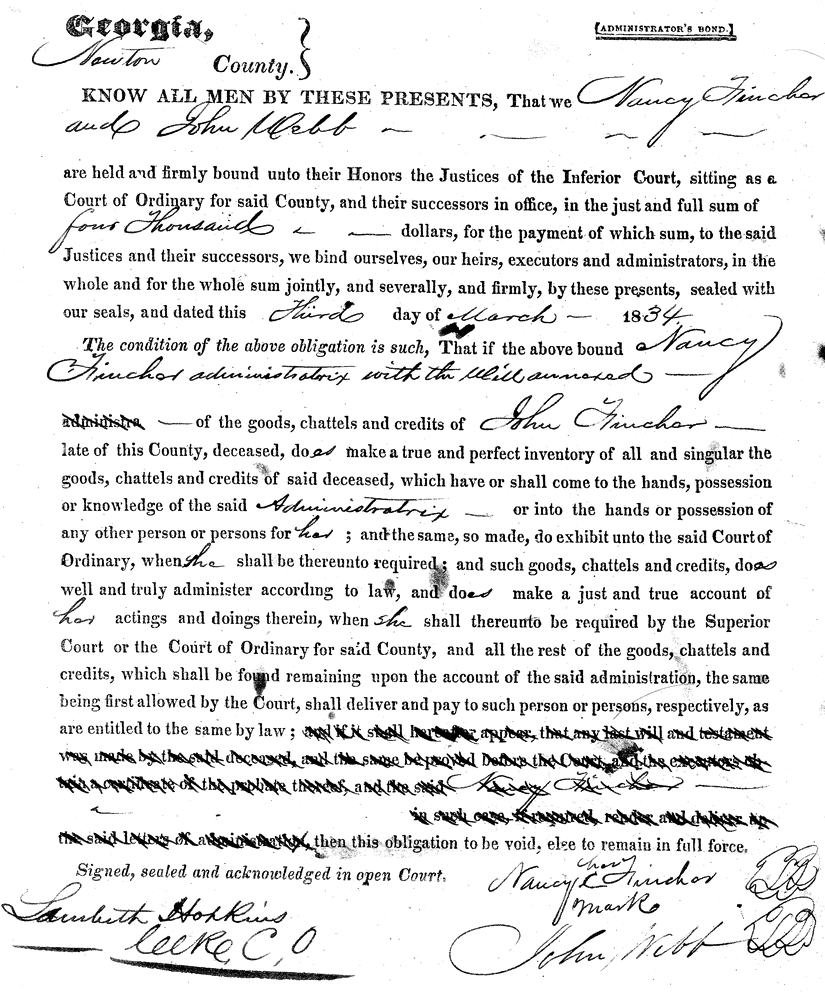 Georgia,
[ADMINISTRATOR'S BOND.]
Newton County.
KNOW ALL MEN BY THESE PRESENTS, That we Nancy Fincher
and John Webb
are held and firmly bound unto their Honors the Justices of the Inferior Court, sitting as a
Court of Ordinary for said County, and their successors in office, in the just and full sum of
four Thousand dollars, for the payment of which sum, to the said
Justices and their successors, we bind ourselves, our heirs, executors and administrators, in the
whole and for the whole sum jointly, and severally, and firmly, by these presents, sealed with
our seals, and dated this Third day of March 1834
The condition of the above obligation is such, That if the above bound Nancy
Fincher administratrix with the Will annexed
administra — of the goods, chattels and credits of John Fincher
late of this County, deceased, does make a true and perfect inventory of all and singular the
goods, chattels and credits of said deceased, which have or shall come to the hands, possession
or knowledge of the said Administratrix or into the hands or possession of
any other person or persons for her ; and the same, so made, do exhibit unto the said Court of
Ordinary, when she shall be thereunto required ; and such goods, chattels and credits, does
well and truly administer according to law, and does make a just and true account of
her actings and doings therein, when she shall thereunto be required by the Superior
Court or the Court of Ordinary for said County, and all the rest of the goods, chattels and
credits, which shall be found remaining upon the account of the said administration, the same
being first allowed by the Court, shall deliver and pay to such person or persons, respectively, as
are entitled to the same by law ; and if it shall hereafter appear, that any last will and testament
was made by the said deceased, and the same be proved before the Court, and the executors
a certificate of the probate thereof, and the said Nancy Fincher
in such case, if required, render and deliver up
the said letters of administration, then this obligation to be void, else to remain in full force.
Signed, sealed and acknowledged in open Court.
her
Nancy Fincher
mark
Lambeth Hopkins
Clerk, C, O
John Webb